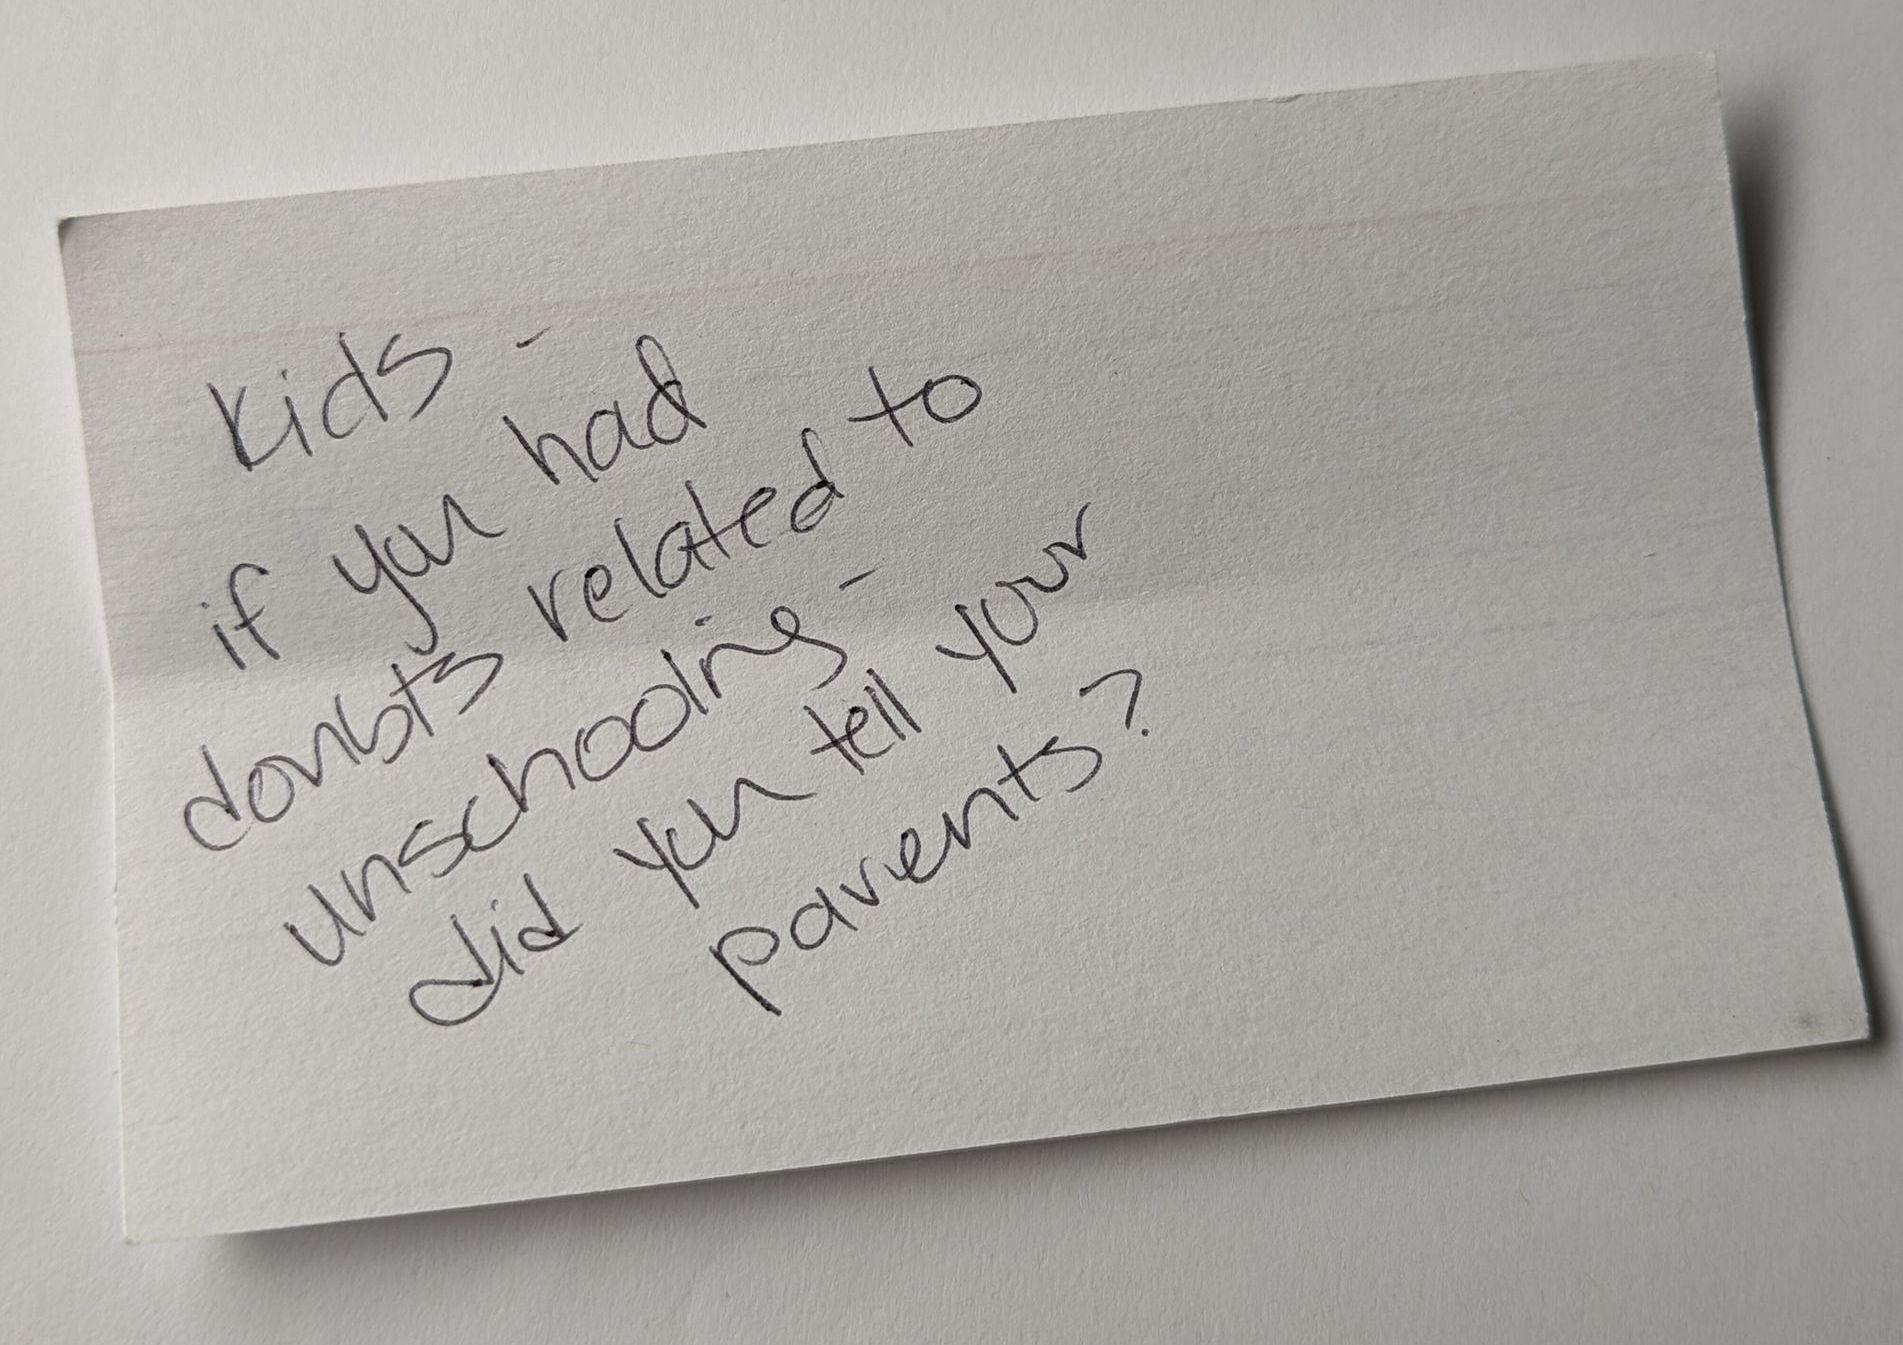 Kids -
if you had
doubts related to
unschooling -
did you tell your
parents?